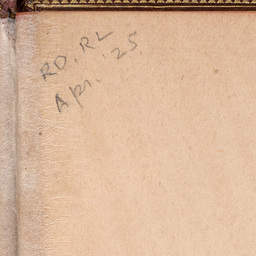 RD. RL
Apr. '25.